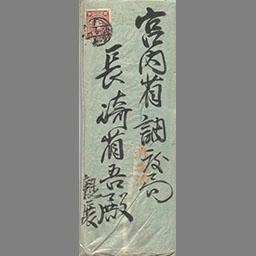 宮内省調度局
長崎省吾殿
親展